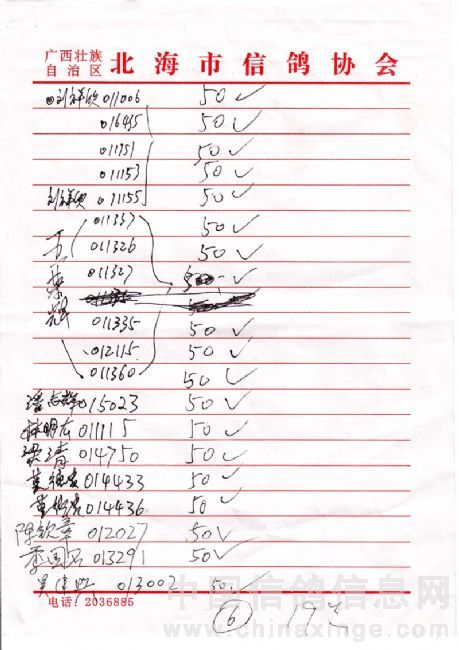 广西壮族
自治区 北海市信鸽协会
刘祥钦 011006 50 ✓
016455 50 ✓
011151 50 ✓
011153 50 ✓
刘祥钦 011155 50 ✓
011337 50 ✓
王 011326 50 ✓
011327 ✓
011335 50 ✓
012115 50 ✓
011360 50 ✓
15023 50 ✓
林明 011115 50 ✓
梁清 014750 50 ✓
014433 50 ✓
014436 50 ✓
陈钦章 012027 50 ✓
李国 013291 50 ✓
吴伟 013002 50 ✓
电话: 2036885
6 19
中国信鸽信息网
www.chinaxinge.com